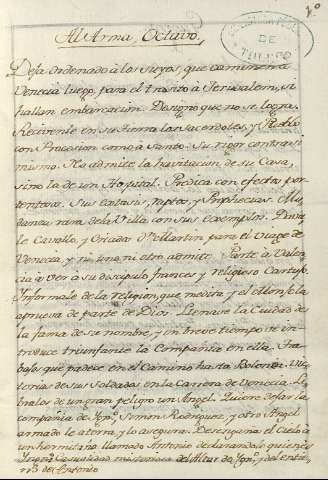 1º
Al Arma, Octavo.
DE
TOLEDO
Dexa ordenado à los suyos, que caminen à
Venecia luego, para el transito à Jerusalem, si
hallan embarcacion. Designio que no se logra.
Recivenle en su tierra los Sacerdotes, y Pueblo
con Procesion como à Santo. Su rigor contra si
mismo. No admite la havitacion de su Casa,
sino la de un Hospital. Predica con efectos por-
tentosos. Sus extasis, raptos, y Prophecias. Mu-
danza rara de la Villa con sus exemplos.
le Cavallo, y Criado Dn. Martin, para el Viage de
Venecia, y ni uno, ni otro admite. Parte à Valen-
cia à ver à su discipulo frances y religioso Cartujo.
Informale de la religion, que medita, y el Monje la
aprueva de parte de Dios. Llenase la Ciudad de
la fama de su nombre, y en breve tiempo se in-
troduce triunfante la Compañia en ella. Tra-
bajos que padece en el Camino hasta Bolonia. Vic-
torias de sus Soldados en la Carrera de Venecia. Li-
bralos de un gran peligro un Angel. Quiere dejar la
compañia de Igno. Simon Rodriguez, y otro Angel
armado le aterra, y lo asegura. Desengaña el Cielo à
un hermitaño llamado Antonio declarandole quien es
Ignacio. Casualidad misteriosa del Altar de Igno. y del entier-
rro de Antonio